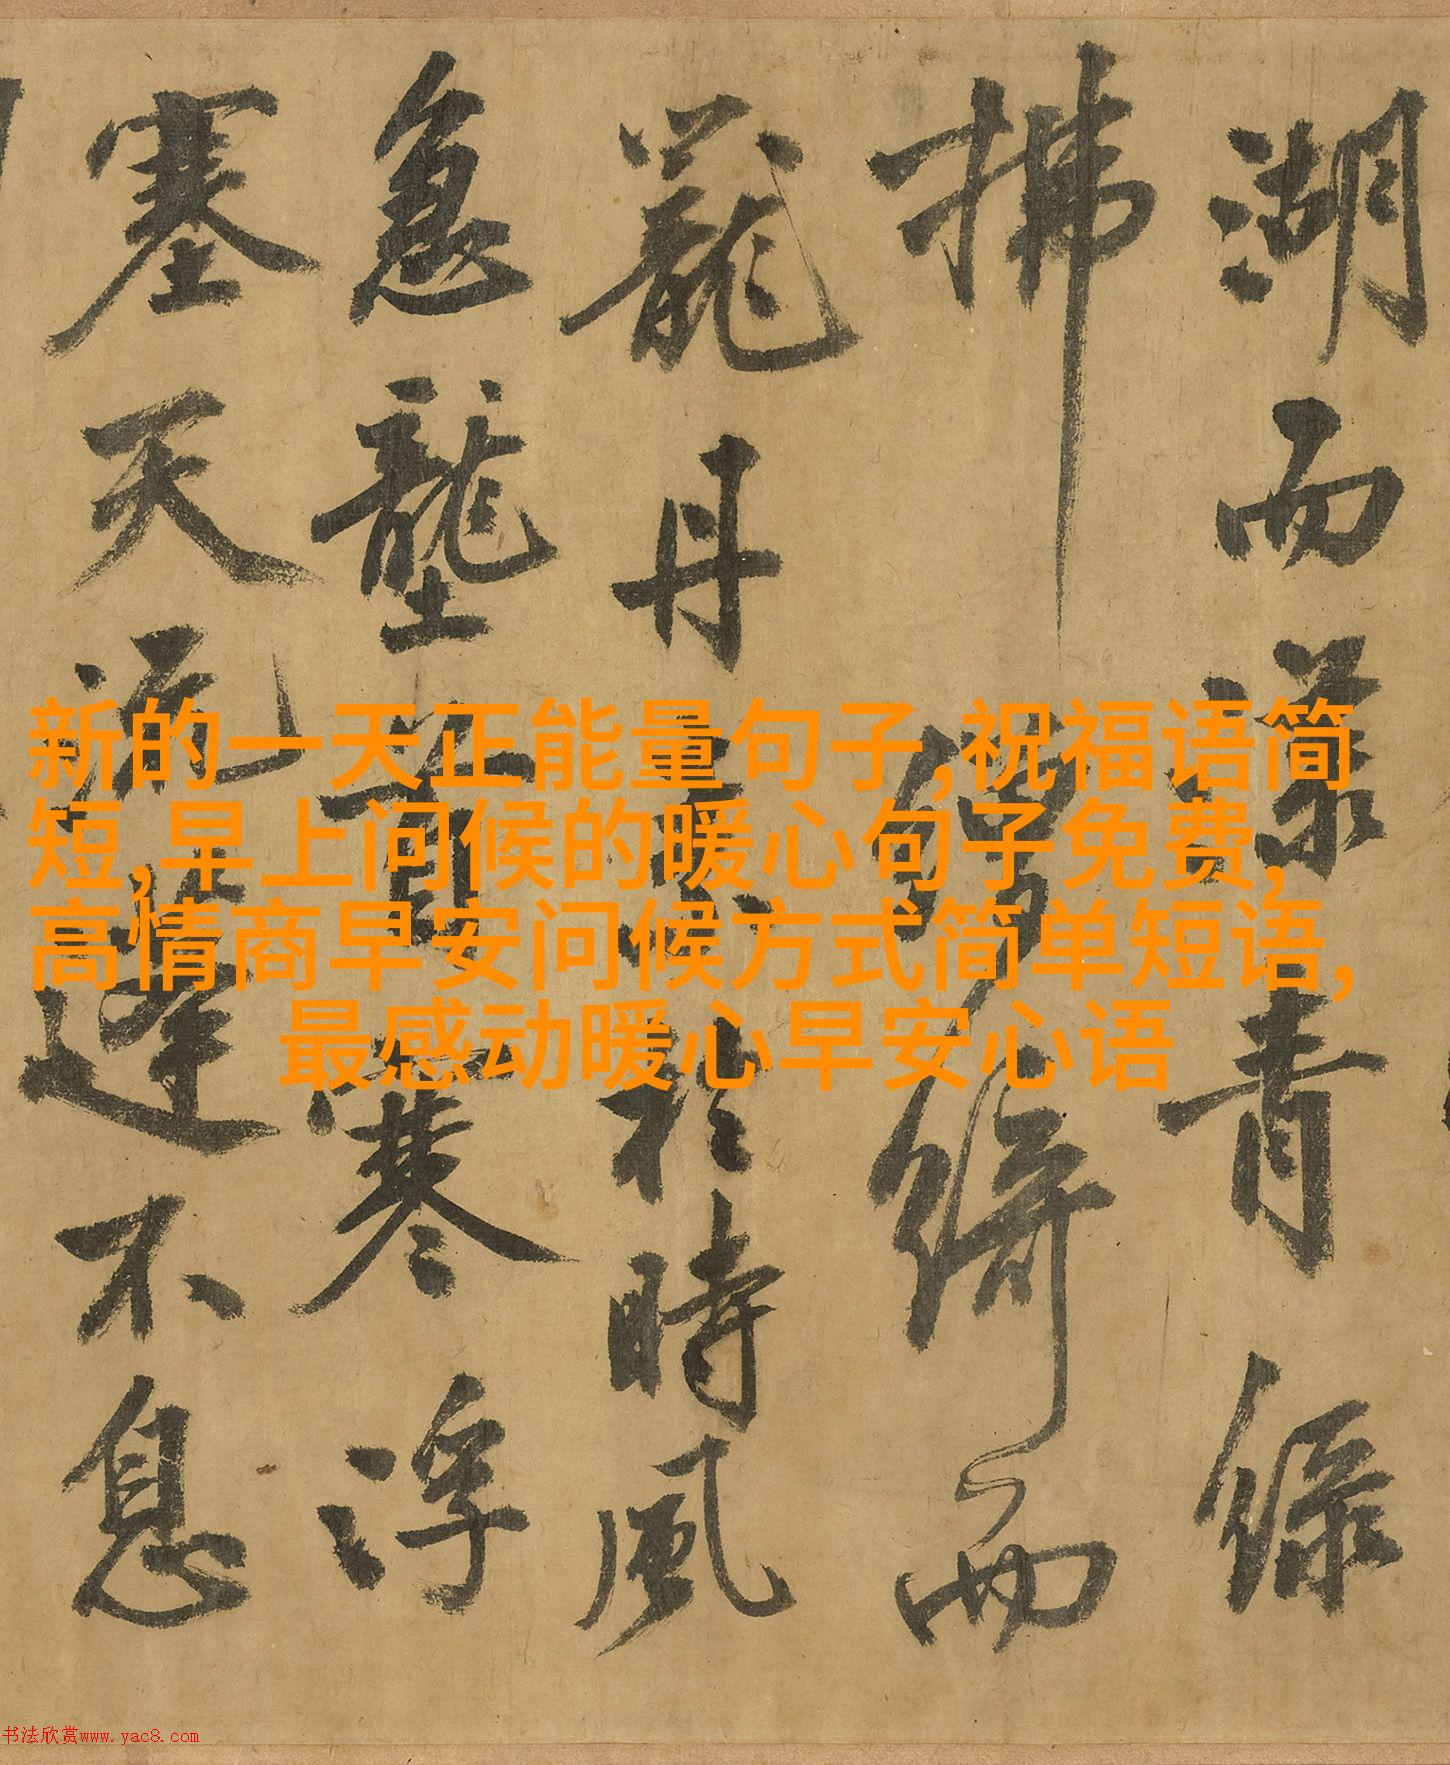 新的一天正能量句子,祝福语简
短,早上问候的暖心句子免费,
高情商早安问候方式简单短语,
最感动暖心早安心语
湖而漾青綠
拂繒綺而
籠丹素於時風
急壟首寒浮
塞天流蓬不息
书法欣赏www.yac8.com